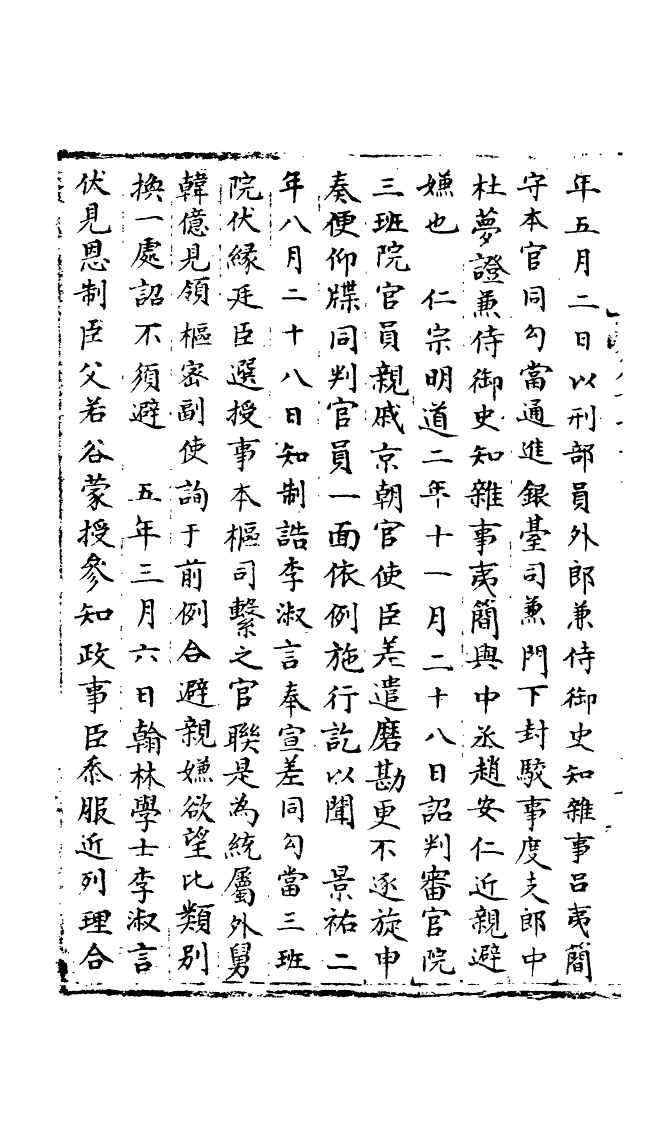 年五月二日以刑部員外郎兼侍御史知雜事吕夷簡
守本官同勾當通進銀臺司兼門下封駮事度支郎中
杜夢證兼侍御史知雜事夷簡與中丞趙安仁近親避
嫌也　仁宗明道二年十一月二十八日詔判審官院
三班院官員親戚京朝官使臣差遣磨勘更不逐旋申
奏便仰牒同判官員一面依例施行訖以聞　景祐二
年八月二十八日知制誥李淑言奉宣差同勾當三班
院伏緣廷臣選授事本樞司繫之官聯是為統屬外舅
韓億見領樞密副使詢于前例合避親嫌欲望比類别
換一處詔不須避　五年三月六日翰林學士李淑言
伏見恩制臣父若谷蒙授參知政事臣忝服近列理合